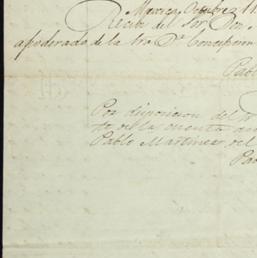 Mexico, Octubre 11
Recibi del Sor. Don
apoderado de la Sra. Da. Concepcion
Pabl
Por disposicion del
de la cuenta an
Pablo Martinez del
Pab